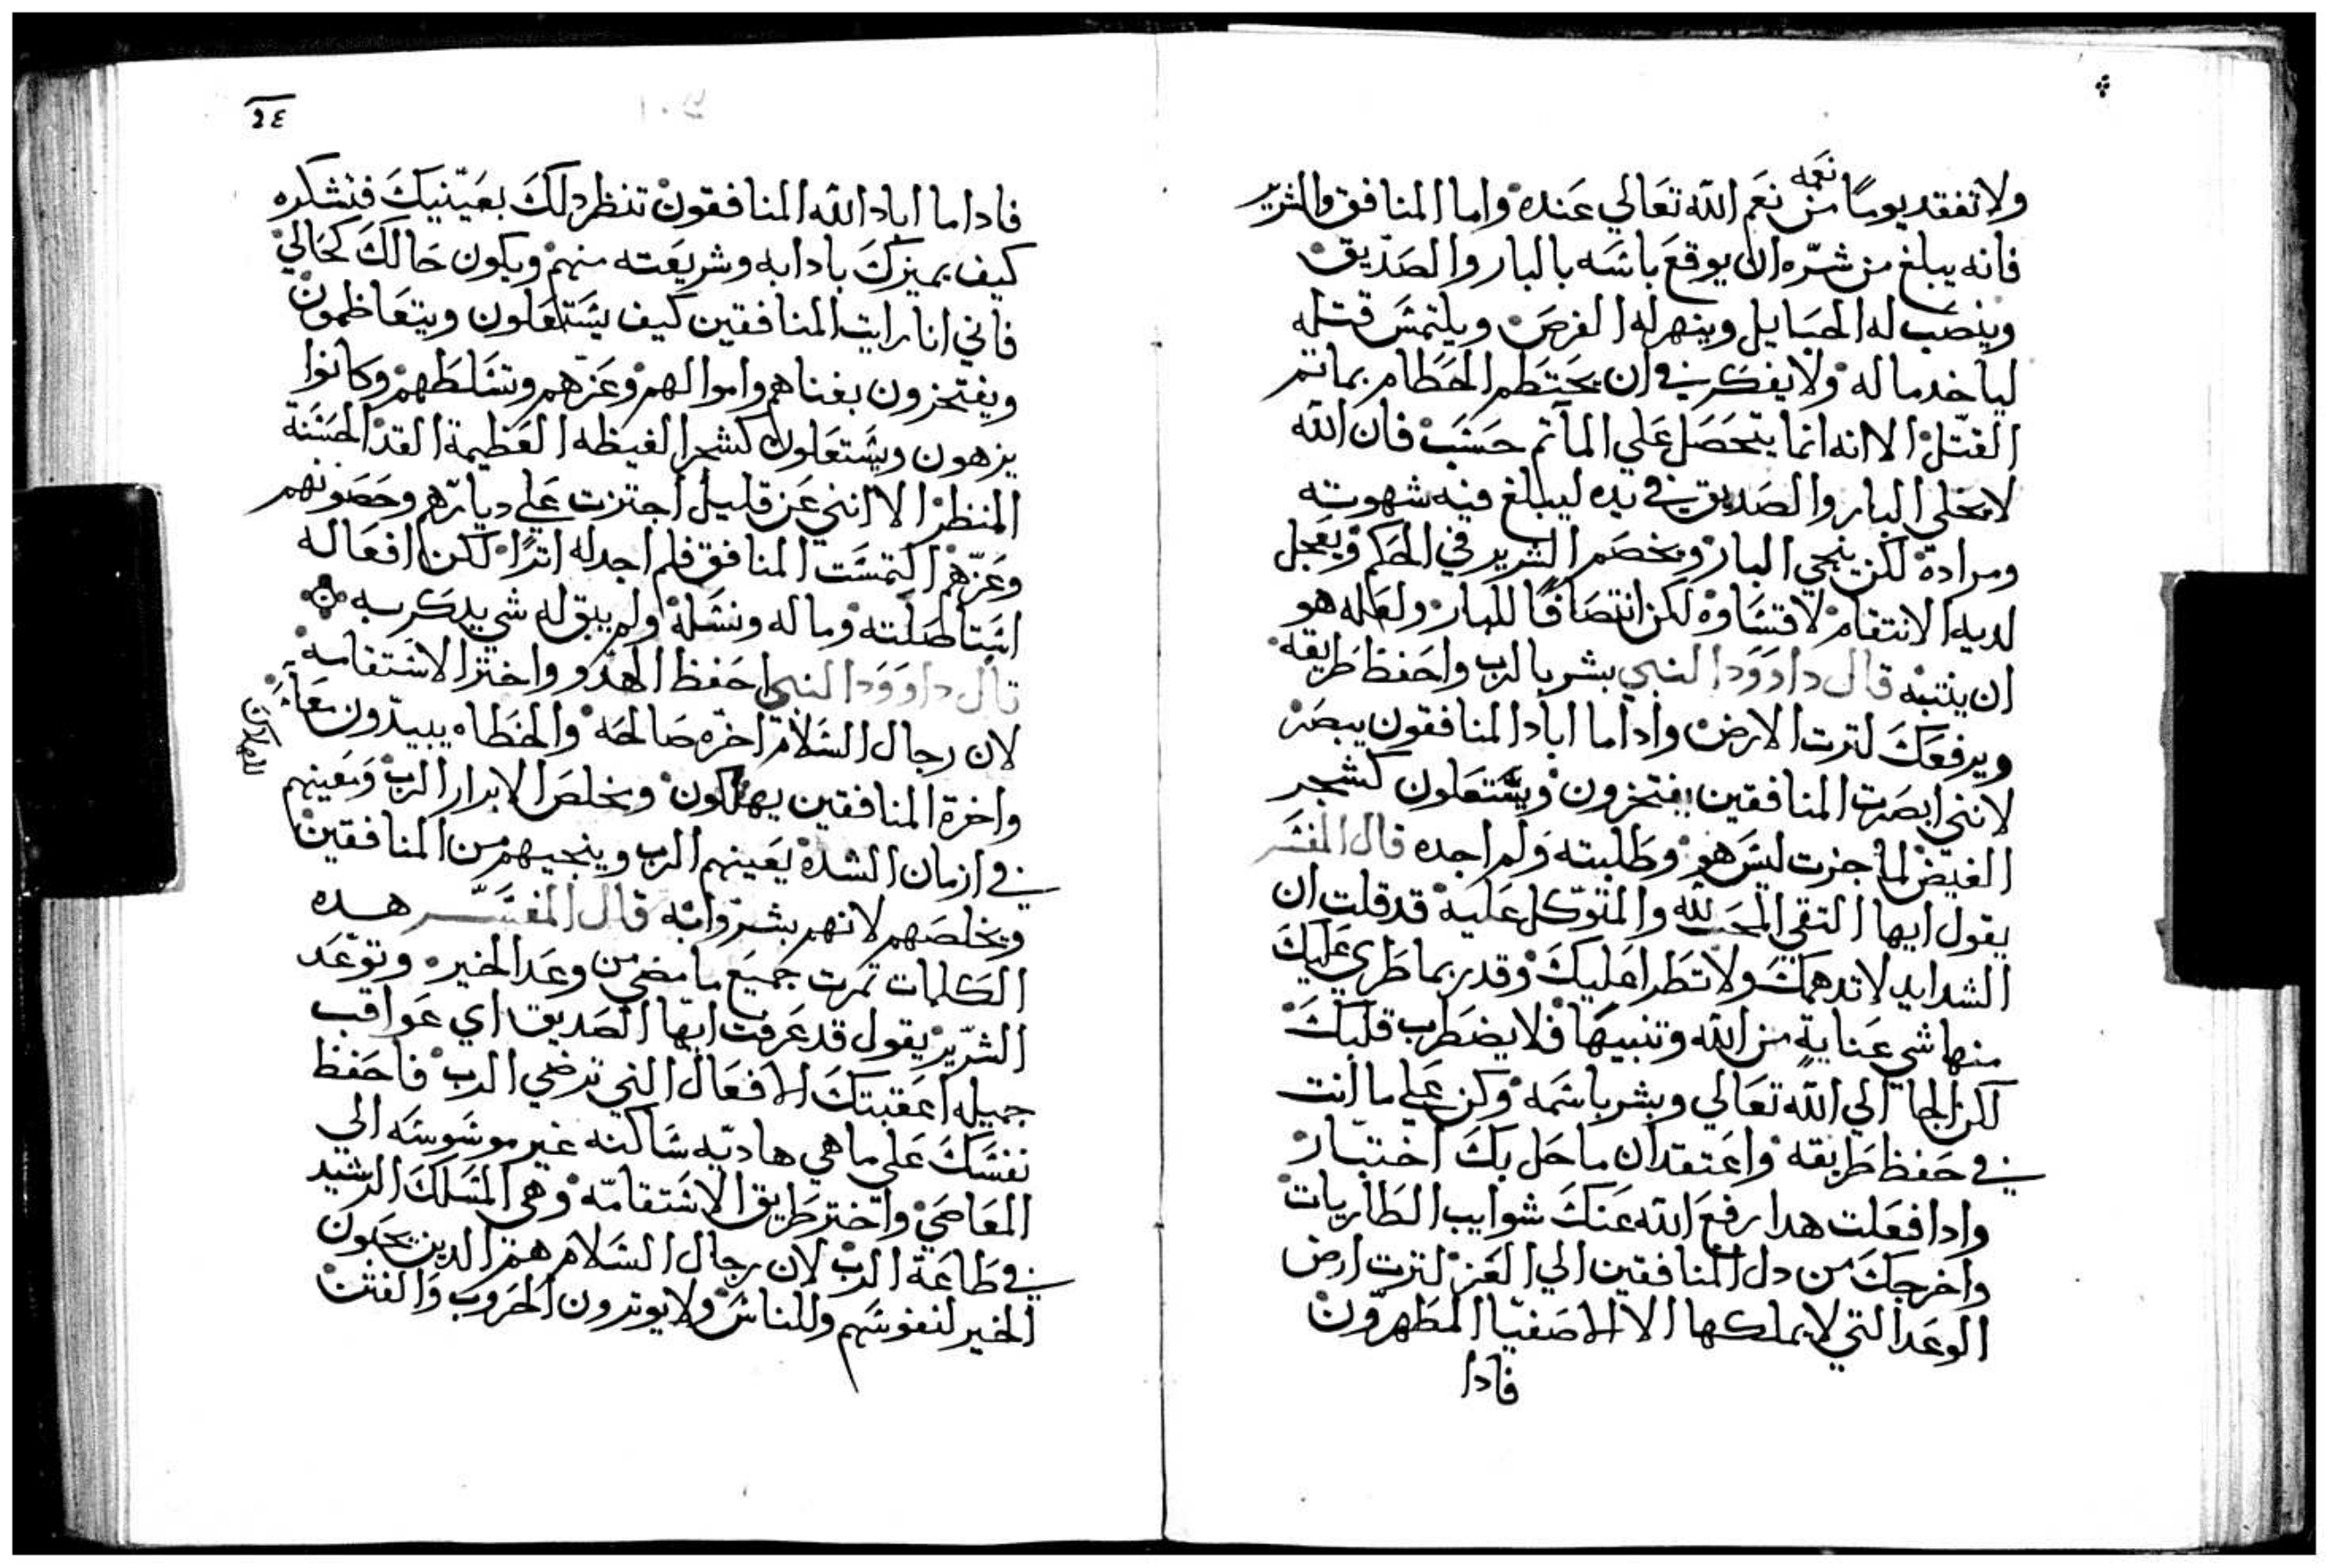 ولا تفقد يومًا من نعمه نعَم الله تعَالي عَنده واما المنافق والشرير
فانه يبلغ من شرّه ان يوقعَ باسَه بالبار والصَدّيق
وينصَب له الحبَايل وينهر له الفرصَ ويلتمسَ قتله
لياخد ماله ولا يفكر في ان يحَتطم الحَطام بماتم
القتل الا انه انما يتحَصَل عَلي المآتم حسَبْ فان الله
لا يخلي البار والصَديق في يده ليبلغ فيه شهوته
ومراده لكن ينجي البار ويخصَم الشرير في الحَكم ويعَجل
لديه الانتقام لا قسَاوه لكن انتصَافًا للبار ولعَله هو
ان ينتبه قال داوَوَد النبي بشر بالرب واحَفظ طَريقه
ويرفعَكَ لترت الارض وادا ما اباد المنافقون يبصَر
لانني ابصَرت المنافقين يفتخرون ويسَتعَلون كشجر
الغيض لما جزت ليسَ هو وطَلبته وَلم اجده قال المفسَر
يقول ايها التقي المحَب لله والمتوّكل عَليه قد قلت ان
الشدايد لا تدهمكَ ولا تطَرا عَليكَ وقد ربما طَري عَليكَ
منها شي عَنايةٍ من الله وتنبيهًا فلا يضطَرب قلبكَ
لكن الجا الي الله تعَالي وبشر باسَمه وكن عَلي ما انت
في حَفظ طَريقه واعَتقد ان ما حَل بكَ اختبار
وادا فعَلت هدا رفعَ الله عَنكَ شوايب الطَاريات
واخرجكَ من دل المنافقين الي العَز لترت ارض
الوعَد التي لا يملكها الا الاصَفيّا المطَهرّون
فادا
٢٤
فادا ما اباد الله المنافقون تنظر دلكَ بعَيّنيكَ فتشكره
كيف يميزكَ بادابه وشريعَته منهم ويكون حَالكَ كحَالي
فاني انا رايت المنافقين كيف يسَتعَلون ويتعَاظمون
ويفتخرون بغناهم واموالهم وعَزّهم وتسَلطَهم وكانوا
يزهون ويسَتعَلون كشجر الغيظه العَظيمة القد الحسَنة
المنظر الا انني عَن قليل اجتزت عَلي ديارهم وحَصَونهم
وعَزّهم التمسَت المنافق فلم اجد له اترًا لكن افعَاله
اسَتاطَلته وماله ونسَله ولم يبق له شي يدكر به
قال داوَوَد النبي احَفظ الهدو واختر الاسَتقامه
لان رجال السَلام اخرّه صَالحَه والخطَاه يبيدّون معَا
واخرة المنافقين يهلكون ويخلصَ الابرار الربْ وَيعَينهم
في ازمان الشدة يعَينهم الرب وينجيهم من المنافقين
ويخلصَهم لانهم بشرّوا به قال المفسَّر هده
الكلمات تمرت جميَع ما مضي من وعَد الخير وتوّعَد
الشرّير يقول قد عَرفت ايّها الصَديق اي عَواقب
جميله اعَقبتكَ الافعَال التي ترضي الربْ فاحَفظ
نفسَكَ عَلي ما هي هاديّه سَاكنه غير موسَوسَه الي
المعَاصَي واختر طَريق الاسَتقامّه وهي المسَلكَ الرشيد
في طَاعَة الربْ لان رجال السَلام هم الدين يحَبون
الخير لنفوسَهم وللناسَ ولا يوترون الحَروب وَالفتن